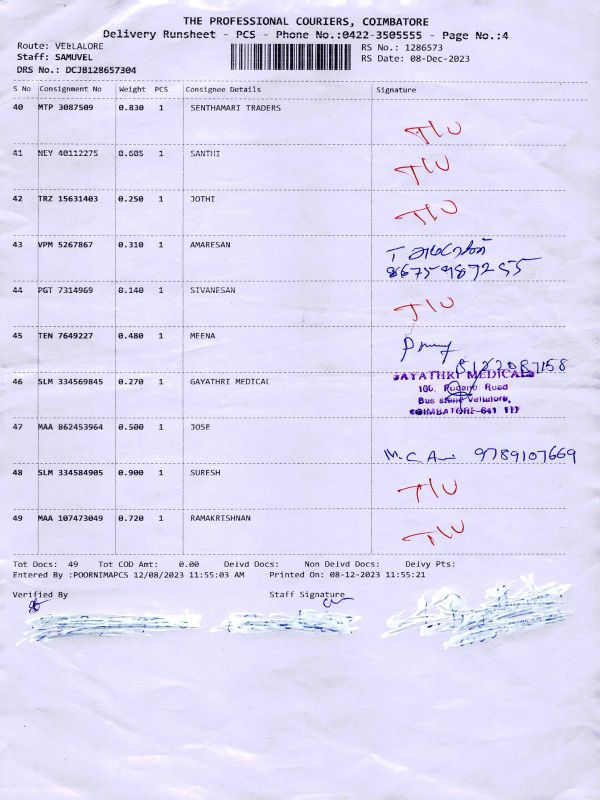 THE PROFESSIONAL COURIERS, COIMBATORE
Delivery Runsheet - PCS - Phone No.:0422-3505555 - Page No.:4
Route: VELLALORE RS No.: 1286573
Staff: SAMUVEL RS Date: 08-Dec-2023
DRS No.: DCJB128657304
S No Consignment No Weight PCS Consignee Details Signature
40 MTP 3087509 0.830 1 SENTHAMARI TRADERS
TIU
41 NEY 40112275 0.605 1 SANTHI
TIU
42 TRZ 15631403 0.250 1 JOTHI
TIU
43 VPM 5267867 0.310 1 AMARESAN
8675987255
44 PGT 7314969 0.140 1 SIVANESAN
TIU
45 TEN 7649227 0.480 1 MEENA
8122087158
46 SLM 334569845 0.270 1 GAYATHRI MEDICAL
JAYATHRI MEDICALS
100, Road
Bus stand Vellalore,
COIMBATORE-641 111
47 MAA 862453964 0.500 1 JOSE
M.C. 9789107669
48 SLM 334584905 0.900 1 SURESH
TIU
49 MAA 107473049 0.720 1 RAMAKRISHNAN
TIU
Tot Docs: 49 Tot COD Amt: 0.00 Delvd Docs: Non Delvd Docs: Delvy Pts:
Entered By :POORNIMAPCS 12/08/2023 11:55:03 AM Printed On: 08-12-2023 11:55:21
Verified By Staff Signature